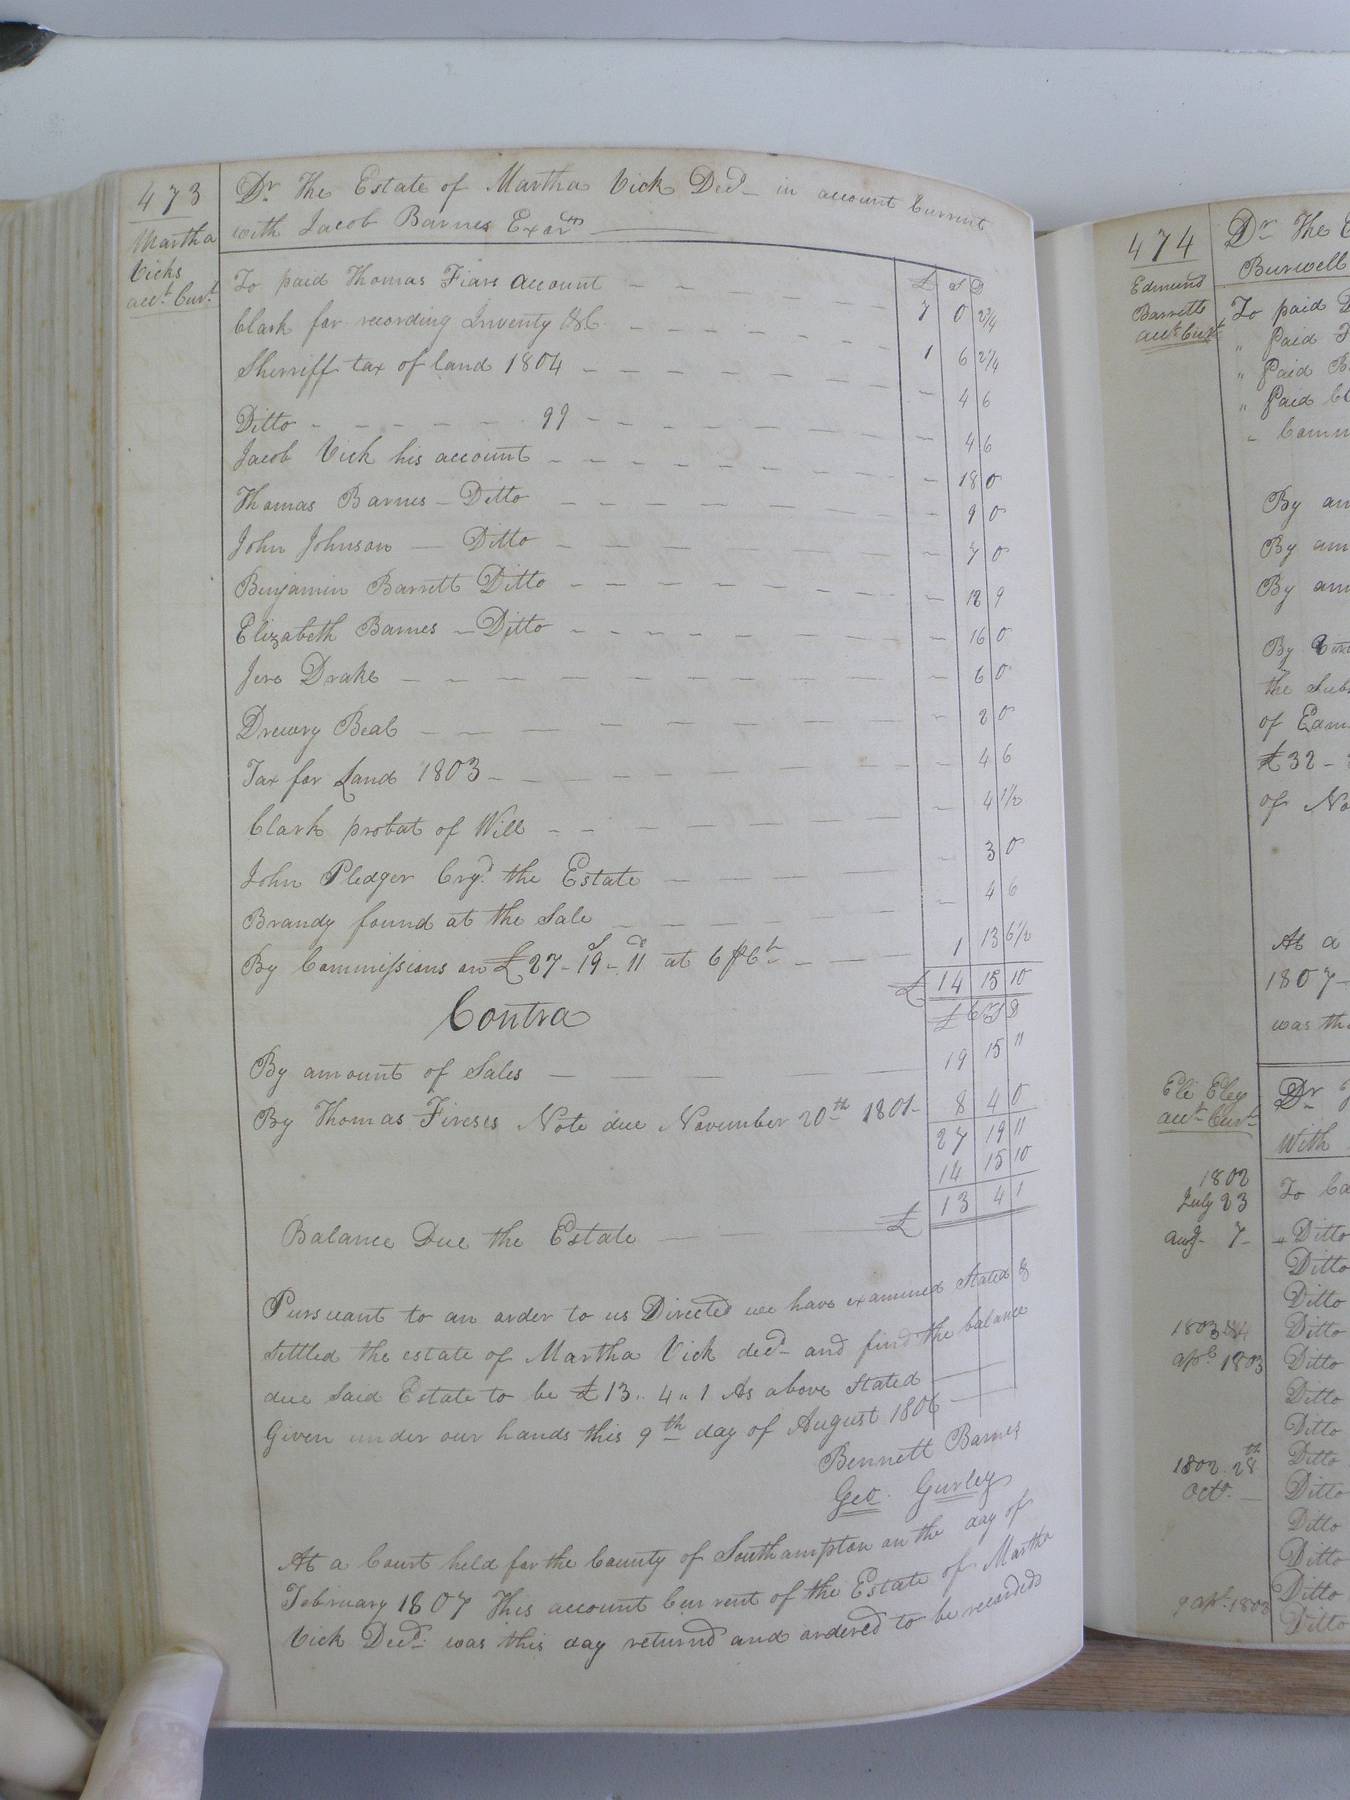 473
Martha
Vicks
acct. Curt.
Dr. The Estate of Martha Vick Decd. in account Current
with Jacob Barnes Exor.
£ S D
To paid Thomas Fiars account 7 0 2 3/4
Clark for recording Inventy &C 1 6 2 1/4
Sherriff tax of land 1804 4 6
Ditto 99 4 6
Jacob Vick his account 18 0
Thomas Barnes Ditto 9 0
John Johnson Ditto 7 0
Benjamin Barrett Ditto 12 9
Elizabeth Barnes Ditto 16 0
Jere Drake 6 0
Drewry Beal 2 0
Tax for Land 1803 4 6
Clark probat of Will 4 1/2
John Pledger Cryd. the Estate 3 0
Brandy found at the Sale 4 6
By Commissions on £27-19-11 at 6 1 13 6 1/2
£ 14 15 10
Contra £ S D
By amount of Sales 19 15 11
By Thomas Note due November 20th 1801 8 4 0
27 19 11
14 15 10
Balance Due the Estate £ 13 4 1
Pursuant to an order to us Directed we have examined Stated &
Settled the estate of Martha Vick decd and find the balance
due said Estate to be £13.. 4 ,, 1 As above Stated
Given under our hands this 9th day of August 1806
Bennett Barnes
Geo. Gurley
At a Court held for the County of Southampton on the day of
February 1807 This account Current of the Estate of Martha
Vick Decd. was this day returnd and ordered to be recorded
474
Edmund
Barretts
acct Curt
Dr The E
Burwell
To paid
„ paid
„ Paid B
„ Paid
Comm
By am
By am
By am
By
the Sub
of Edm
£32
of No
At a
1807
was th
Eli Eley
acct Curt
Dr
with
1802
July 23 To Ca
augt 7 Ditto
Ditto
Ditto
Ditto
apl 1803 Ditto
Ditto
Ditto
1802 28th Ditto
Octo. Ditto
Ditto
Ditto
Ditto
9 apl. 1803 Ditto